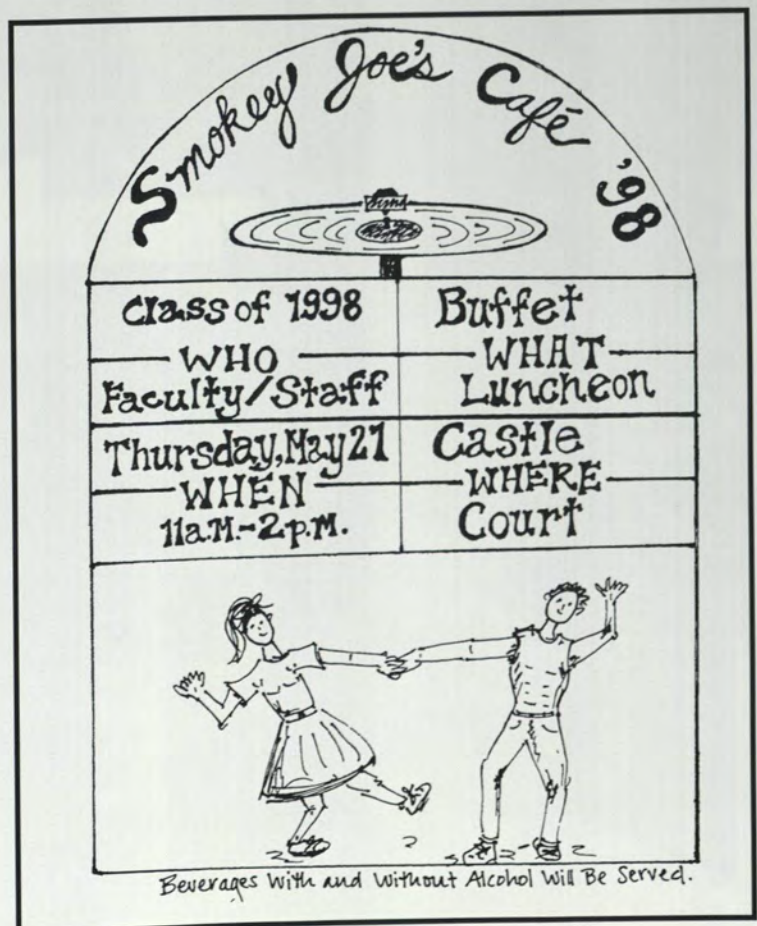 Smokey Joe's Café '98
Class of 1998
WHO
Faculty/Staff
Buffet
WHAT
Luncheon
Thursday, May 21
WHEN
11a.M.-2p.M.
Castle
WHERE
Court
Beverages With and Without Alcohol Will Be Served.